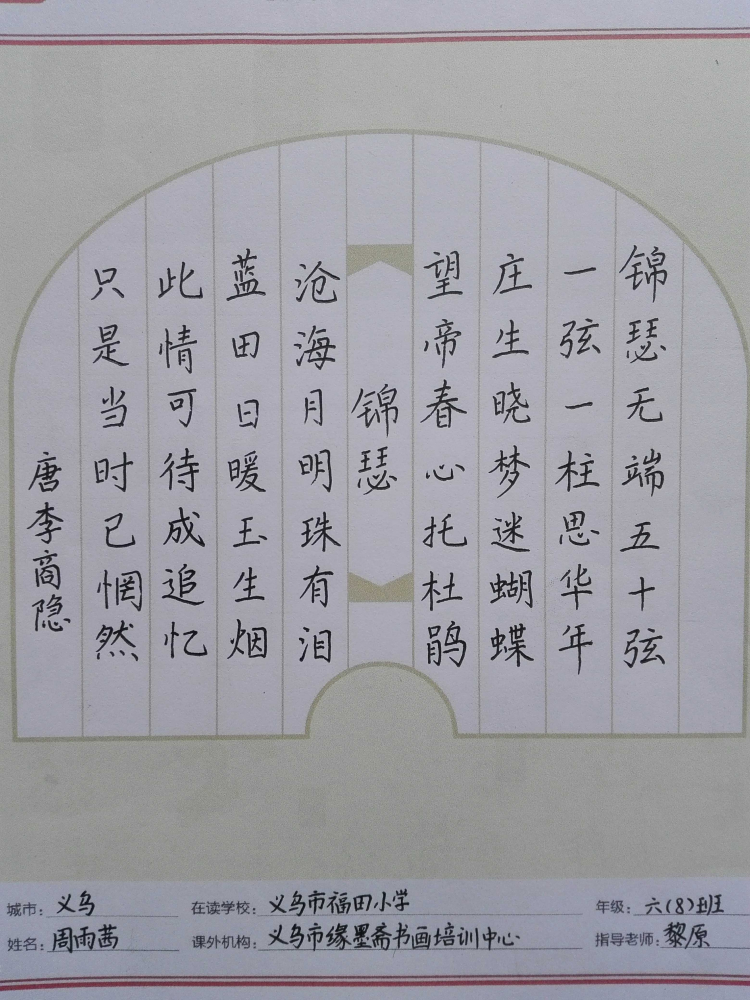 锦瑟无端五十弦
一弦一柱思华年
庄生晓梦迷蝴蝶
望帝春心托杜鹃
锦瑟
沧海月明珠有泪
蓝田日暖玉生烟
此情可待成追忆
只是当时已惘然
唐李商隐
城市：义乌 在读学校：义乌市福田小学 年级：六(8)班
姓名：周雨茜 课外机构：义乌市缘墨斋书画培训中心 指导老师：黎原